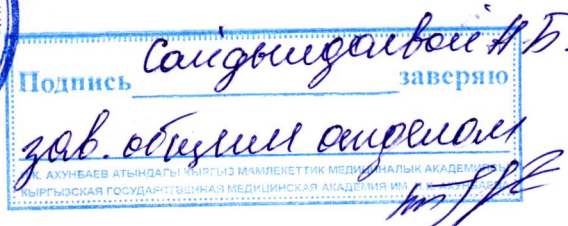 Подпись Сайдылдаевой Н Б. заверяю
зав. общим отделом
И.К. АХУНБАЕВ АТЫНДАГЫ КЫРГЫЗ МАМЛЕКЕТТИК МЕДИЦИНАЛЫК АКАДЕМИЯСЫ
КЫРГЫЗСКАЯ ГОСУДАРСТВЕННАЯ МЕДИЦИНСКАЯ АКАДЕМИЯ ИМ. И.К. АХУНБАЕВА